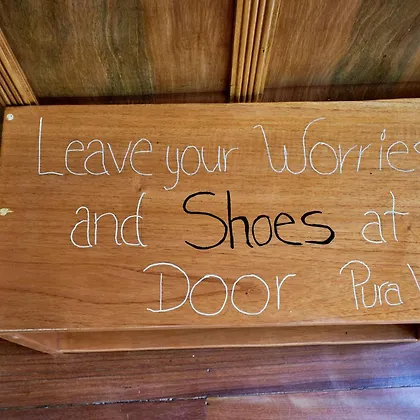 Leave your Worries
and Shoes at
Door Pura